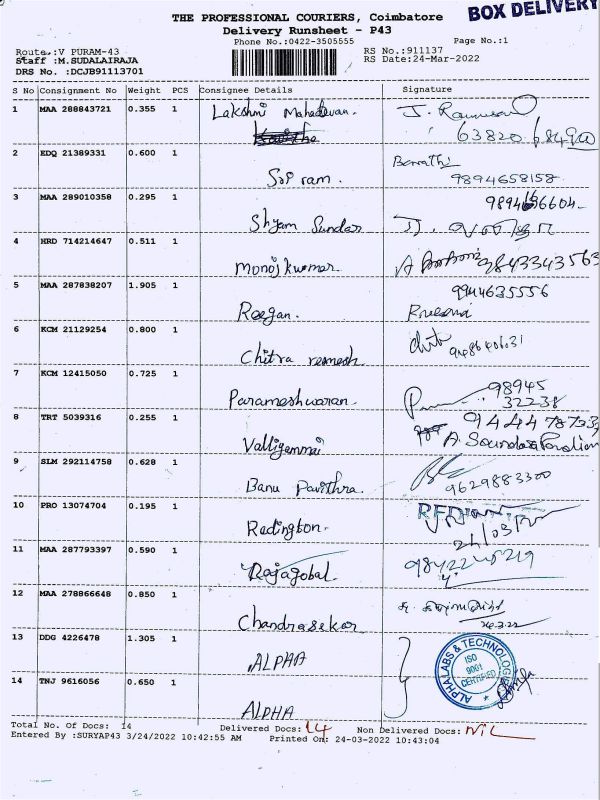 BOX DELIVERY
THE PROFESSIONAL COURIERS, Coimbatore
Delivery Runsheet - P43
Phone No.:0422-3505555
Page No.:1
Route.:V PURAM-43
RS No.:911137
Staff :M.SUDALAIRAJA
RS Date:24-Mar-2022
DRS No. :DCJB91113701
S No Consignment No Weight PCS Consignee Details Signature
1 MAA 288843721 0.355 1 Lakshmi Mahadevan.
2 EDQ 21389331 0.600 1 Sri ram. 9894658158
3 MAA 289010358 0.295 1 Shyam Sundar
4 HRD 714214647 0.511 1 Monoj kumar. 9843343563
5 MAA 287838207 1.905 1 Reegan. 9944635556
6 KCM 21129254 0.800 1 Chitra remesh
7 KCM 12415050 0.725 1 Parameshwaran. 98945
32238
8 TRT 5039316 0.255 1 Valligammai
9 SLM 292114758 0.628 1 Banu Pavithra. 9629883300
10 PRO 13074704 0.195 1 Redington.
11 MAA 287793397 0.590 1 Rajagobal.
12 MAA 278866648 0.850 1 Chandrasekar
24.3.22
13 DDG 4226478 1.305 1 ALPHA
ALPHA LABS & TECHNOLOGIES
ISO
9001
CERTIFIED
14 TNJ 9616056 0.650 1 ALPHA
Total No. Of Docs: 14 Delivered Docs: 14 Non Delivered Docs: NIL
Entered By :SURYAP43 3/24/2022 10:42:55 AM Printed On: 24-03-2022 10:43:04